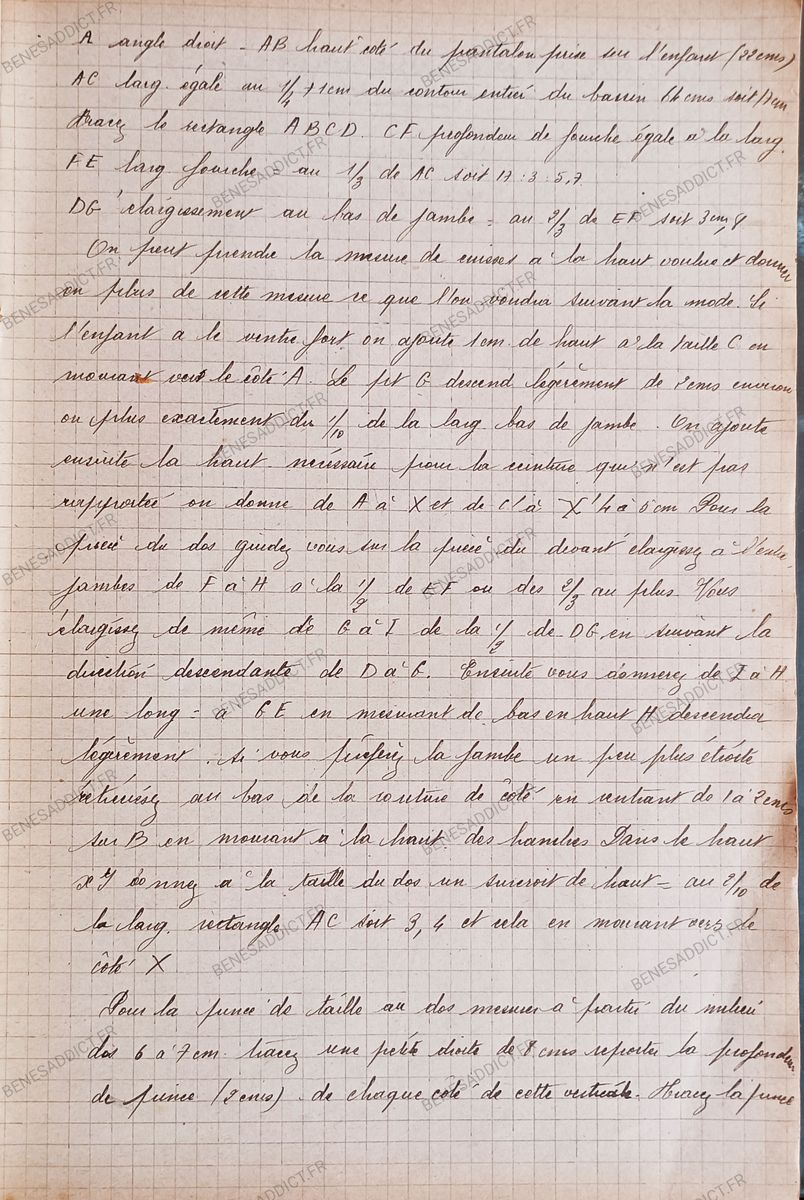 A angle droit - AB haut côté du pantalon prise sur l'enfant (22cms)
AC larg. égale au 1/4 + 1cm du contour entier du bassin 64cms soit 17cm
tracez le rectangle ABCD. CF profondeur de fourche égale à la larg.
FE larg fourche = au 1/3 de AC soit 17 : 3 : 5,7
DG élargissement au bas de jambe = au 2/3 de EF soit 3cm,8
On peut prendre la mesure de cuisses à la haut voulue et donner
en plus de cette mesure ce que l'on voudra suivant la mode. Si
l'enfant a le ventre fort on ajoute 1cm. de haut à la taille C en
mourant vers le côté A. Le pt G descend légèrement de 2cms environ
ou plus exactement du 1/10 de la larg. bas de jambe. On ajoute
ensuite la haut. nécessaire pour la ceinture qui n'est pas
rapportée on donne de A à X et de C à X' 4 à 5cm Pour la
pièce du dos guidez vous sur la pièce du devant élargissez à l'entre
jambes de F à H à la 1/2 de EF ou des 2/3 au plus. Vous
élargissez de même de G à I de la 1/2 de DG en suivant la
direction descendante de D à G. Ensuite vous donnerez de I à H
une long = à GE en mesurant de bas en haut H descendra
légèrement. Si vous préférez la jambe un peu plus étroite
rétrécissez au bas de la couture de côté en rentrant de 1 à 2cms
sur B en mourant à la haut. des hanches Dans le haut
donnez à la taille du dos un surcroit de haut = au 2/10 de
la larg. rectangle AC soit 3,4 et cela en mourant vers le
côté X
Pour la pince de taille au dos mesurer à partir du milieu
dos 6 à 7cm. tracez une petite droite de 8cms reporter la profondeur
de pince (2cms) de chaque côté de cette verticale. Tracez la pince
BENESADDICT.FR